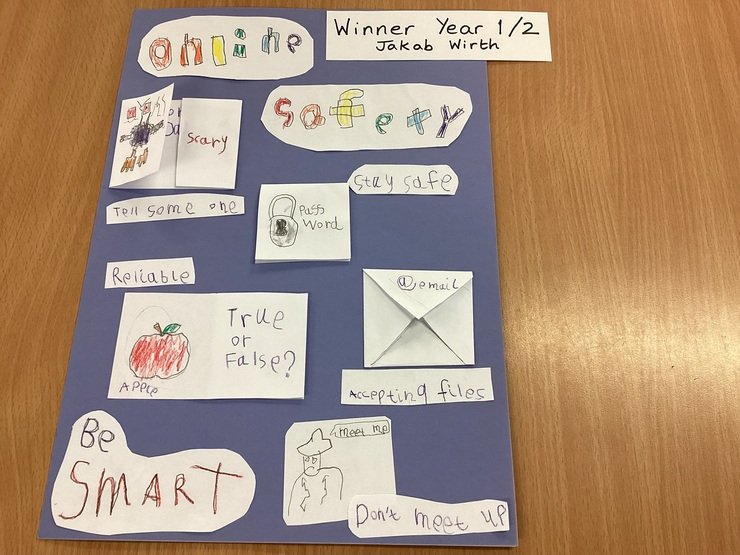 online
Winner Year 1/2
Jakab Wirth
Safety
scary
Stay safe
Tell some one
Pass
Word
Reliable
@email
True
or
False?
APPle
Accepting files
Be
SMART
meet me
Don't meet up